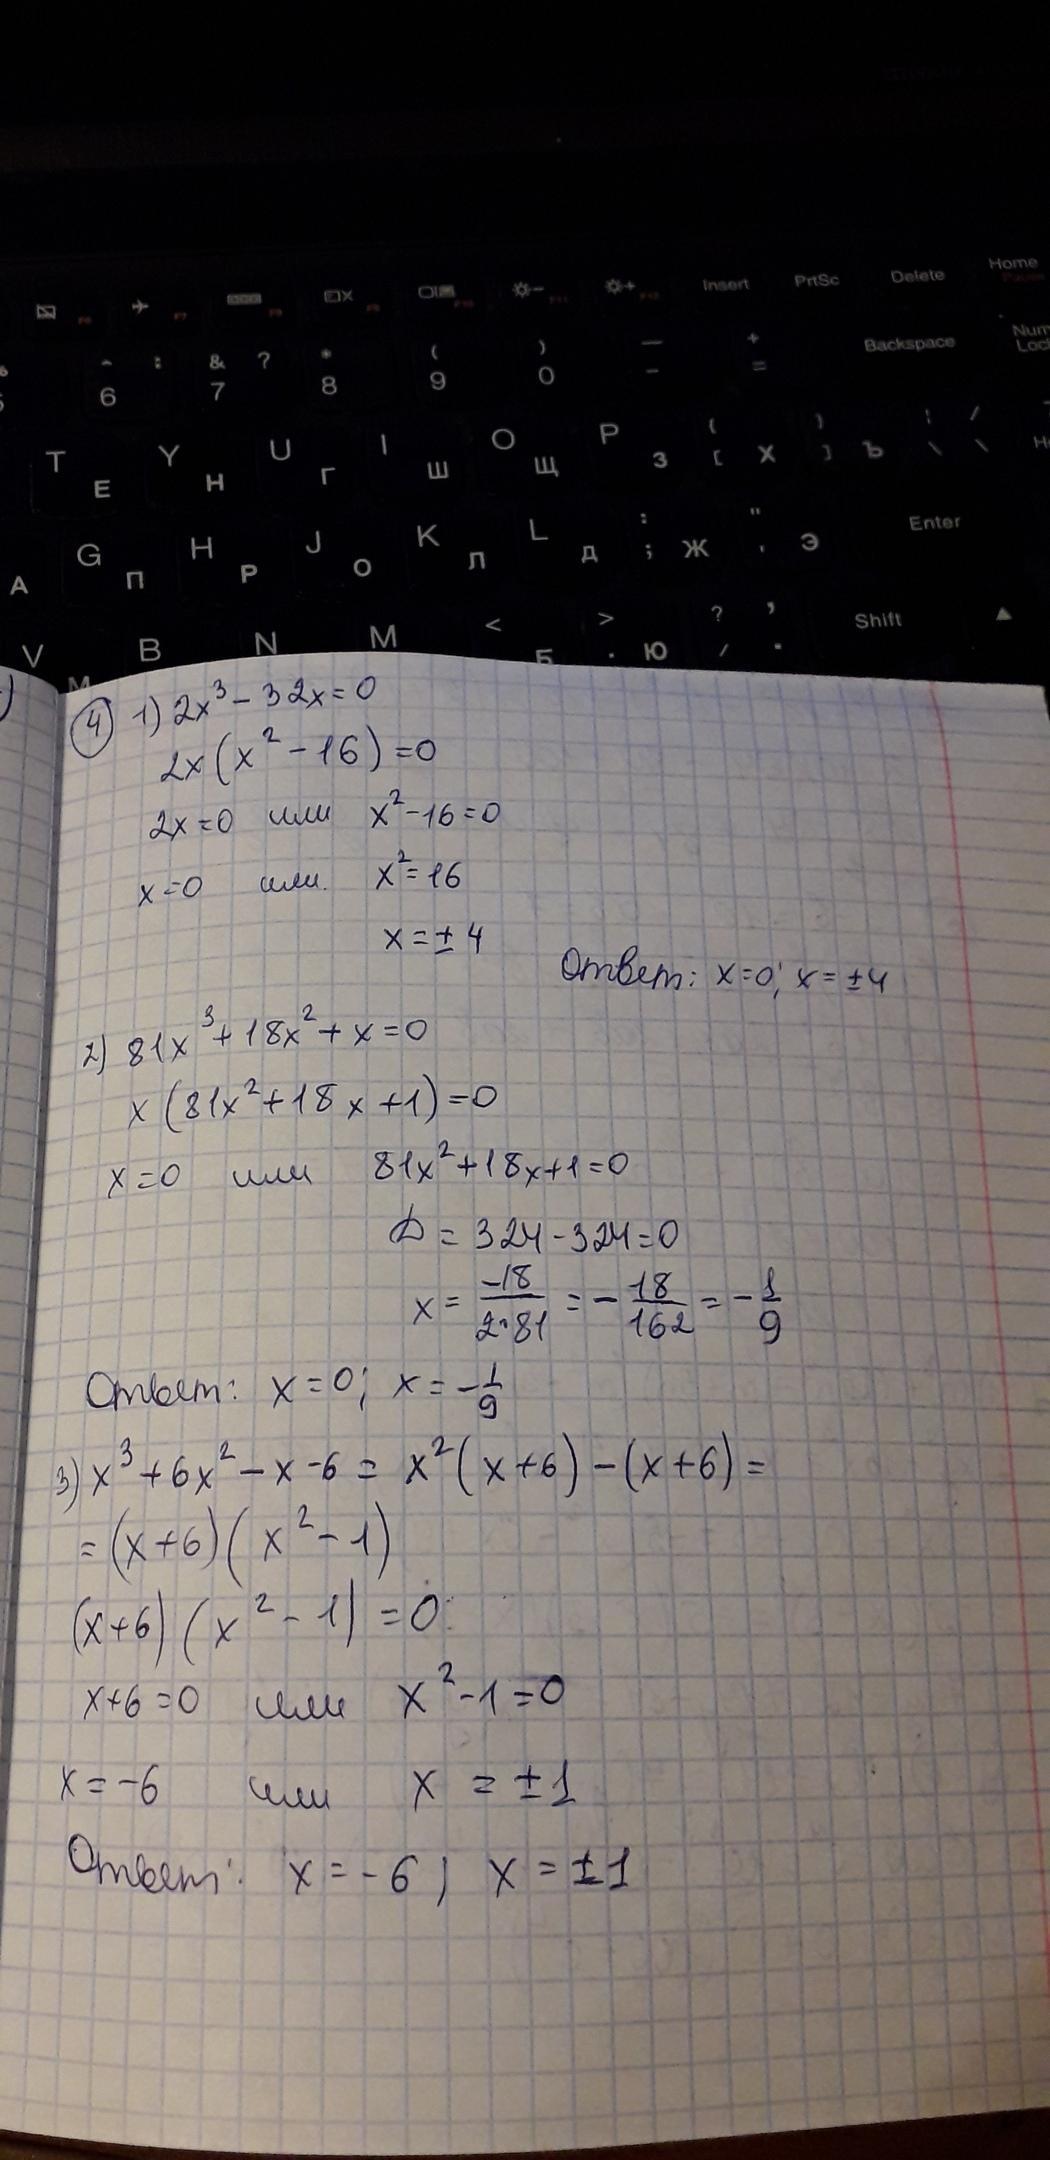 Insert PrtSc Delete Home
Pause
^ : & ? * ( ) — +
6 7 8 9 0 - = Backspace Num
Lock
T Y U I O P { } | /
Е Н Г Ш Щ З [ Х ] Ъ \ \
G H J K L : " Enter
А П Р О Л Д ; Ж ' Э
V B N M < > ? , Shift
М Б . Ю / .
4 1) 2x³ - 32x = 0
2x(x² - 16) = 0
2x = 0 или x² - 16 = 0
x = 0 или x² = 16
x = ± 4
Ответ: x = 0; x = ±4
2) 81x³ + 18x² + x = 0
x(81x² + 18x + 1) = 0
x = 0 или 81x² + 18x + 1 = 0
D = 324 - 324 = 0
x = -18/2·81 = - 18/162 = - 1/9
Ответ: x = 0; x = - 1/9
3) x³ + 6x² - x - 6 = x²(x+6) - (x+6) =
= (x+6)(x² - 1)
(x+6)(x² - 1) = 0
x+6 = 0 или x² - 1 = 0
x = -6 или x = ±1
Ответ: x = -6; x = ±1